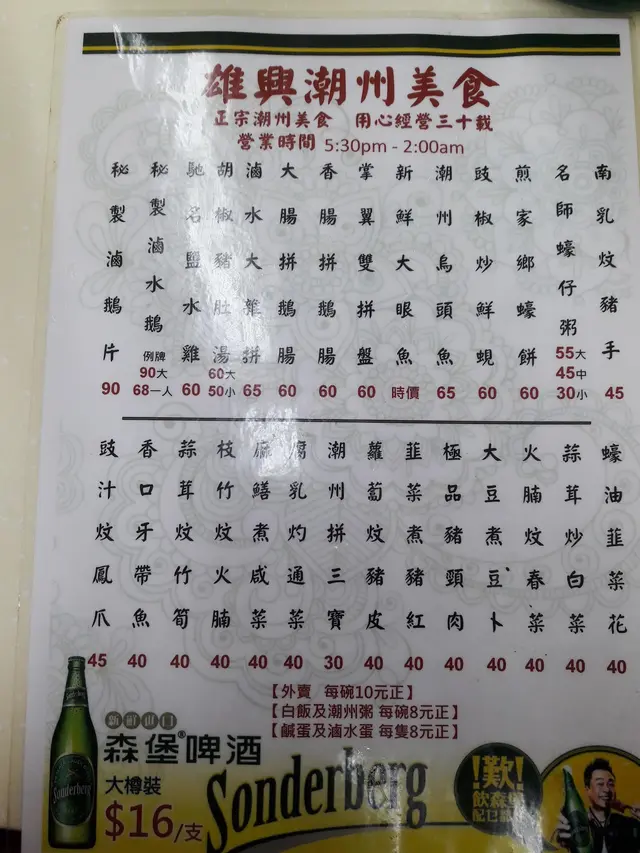 雄興潮州美食
正宗潮州美食　用心經營三十載
營業時間 5:30pm - 2:00am
南乳炆豬手 45
名師蠔仔粥 55大 45中 30小
煎家鄉蠔餅 60
豉椒炒鮮蜆 60
潮州烏頭魚 65
新鮮大眼魚 時價
掌翼雙拼盤 60
香腸拼鵝腸 60
大腸拼鵝腸 60
滷水大雜拼 65
胡椒豬肚湯 60大 50小
馳名鹽水雞 60
秘製滷水鵝 例牌 90大 68一人
秘製滷鵝片 90
蠔油韮菜花 40
蒜茸炒白菜 40
火腩炆春菜 40
大豆煮豆卜 40
極品豬頸肉 40
韮菜煮豬紅 40
蘿蔔炆豬皮 40
潮州拼三寶 30
腐乳灼通菜 40
麻鱔煮咸菜 40
枝竹炆火腩 40
蒜茸炆竹筍 40
香口牙帶魚 40
豉汁炆鳳爪 45
【外賣 每碗10元正】
【白飯及潮州粥 每碗8元正】
【鹹蛋及滷水蛋 每隻8元正】
森堡®啤酒
大樽裝
$16/支
Sonderberg
Sonderberg
!歎!
飲森堡